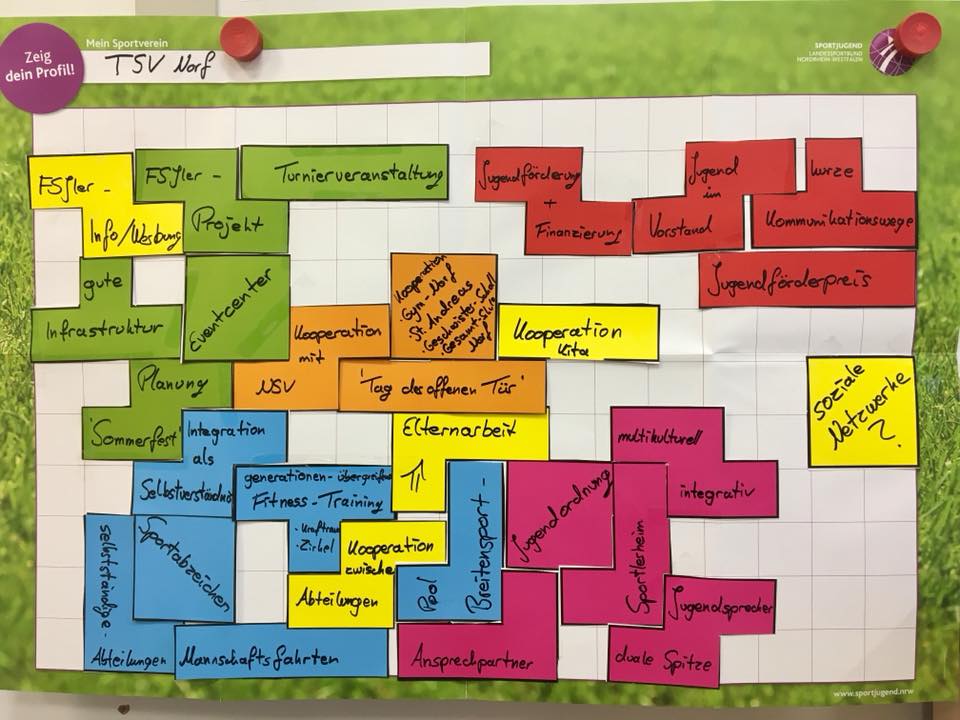 Zeig
dein Profil!
Mein Sportverein
TSV Norf
SPORTJUGEND
LANDESSPORTBUND
NORDRHEIN-WESTFALEN
FSJler -
Info/Werbung
FSJler -
Projekt
Turnierveranstaltung
Jugendförderung
+
Finanzierung
Jugend
im
Vorstand
kurze
Kommunikationswege
Jugendförderpreis
gute
Infrastruktur
Eventcenter
Kooperation
mit
NSV
Kooperation
· Gym - Norf
· St. Andreas
· Geschwister-Scholl
· Gesamtschule
Norf
Kooperation
Kita
'Tag des offenen Tür'
Planung
'Sommerfest'
soziale
Netzwerke
?
Integration
als
Selbstverständnis
Elternarbeit
generationen-übergreifend
Fitness-Training
· Kraftraum
· Zirkel
Kooperation
zwischen
Abteilungen
selbstständige-
Abteilungen
Sportabzeichen
Mannschaftsfahrten
Pool
Breitensport-
Jugendordnung
Ansprechpartner
multikulturell
integrativ
Sportlerheim
Jugendsprecher
duale Spitze
www.sportjugend.nrw